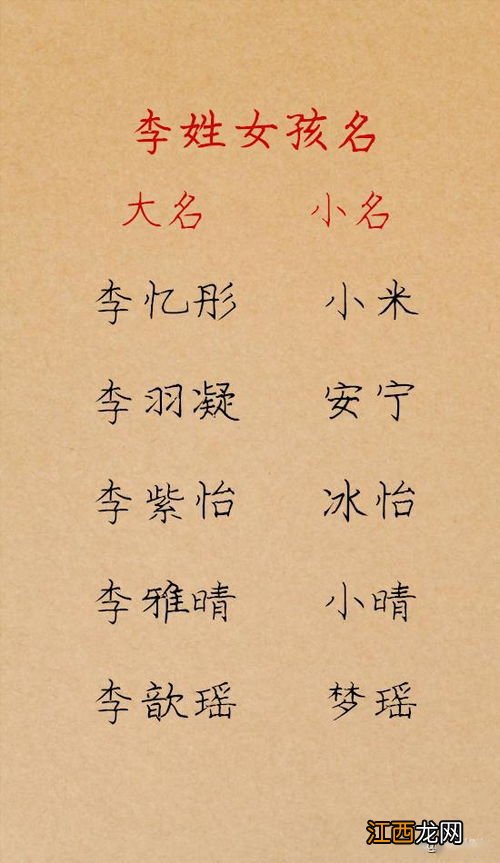 李姓女孩名
大名 小名
李忆彤 小米
李羽凝 安宁
李紫怡 冰怡
李雅晴 小晴
李歆瑶 梦瑶
江西龙网